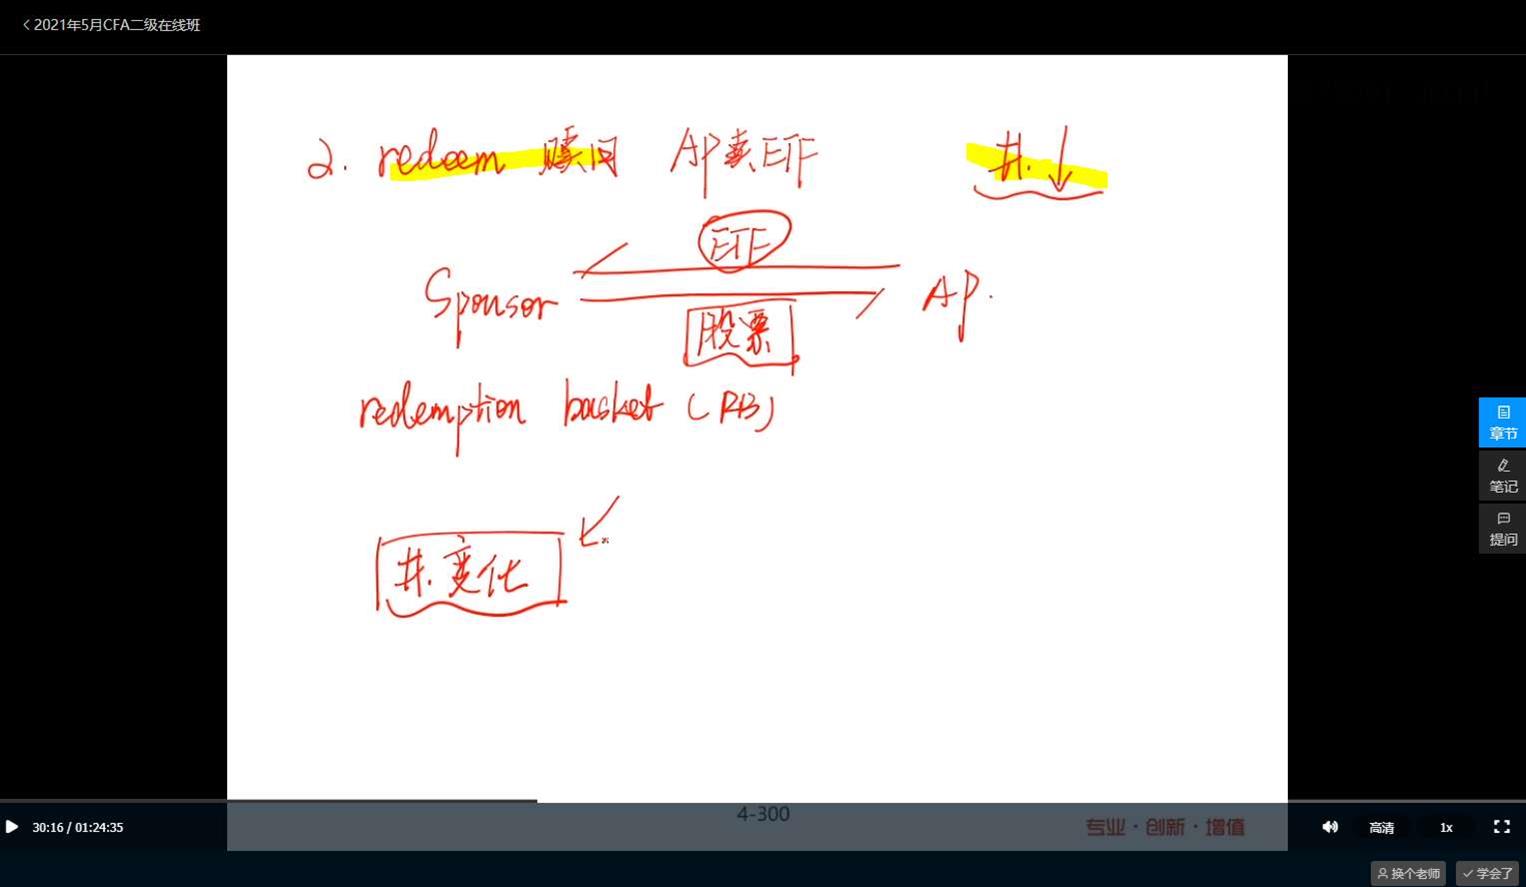 2021年5月CFA二级在线班
2. redeem 赎回 AP卖ETF #.↓
ETF
Sponsor AP.
股票
redemption basket (RB)
#.变化
章节
笔记
提问
4-300
专业·创新·增值
30:16 / 01:24:35 高清 1x
换个老师 学会了